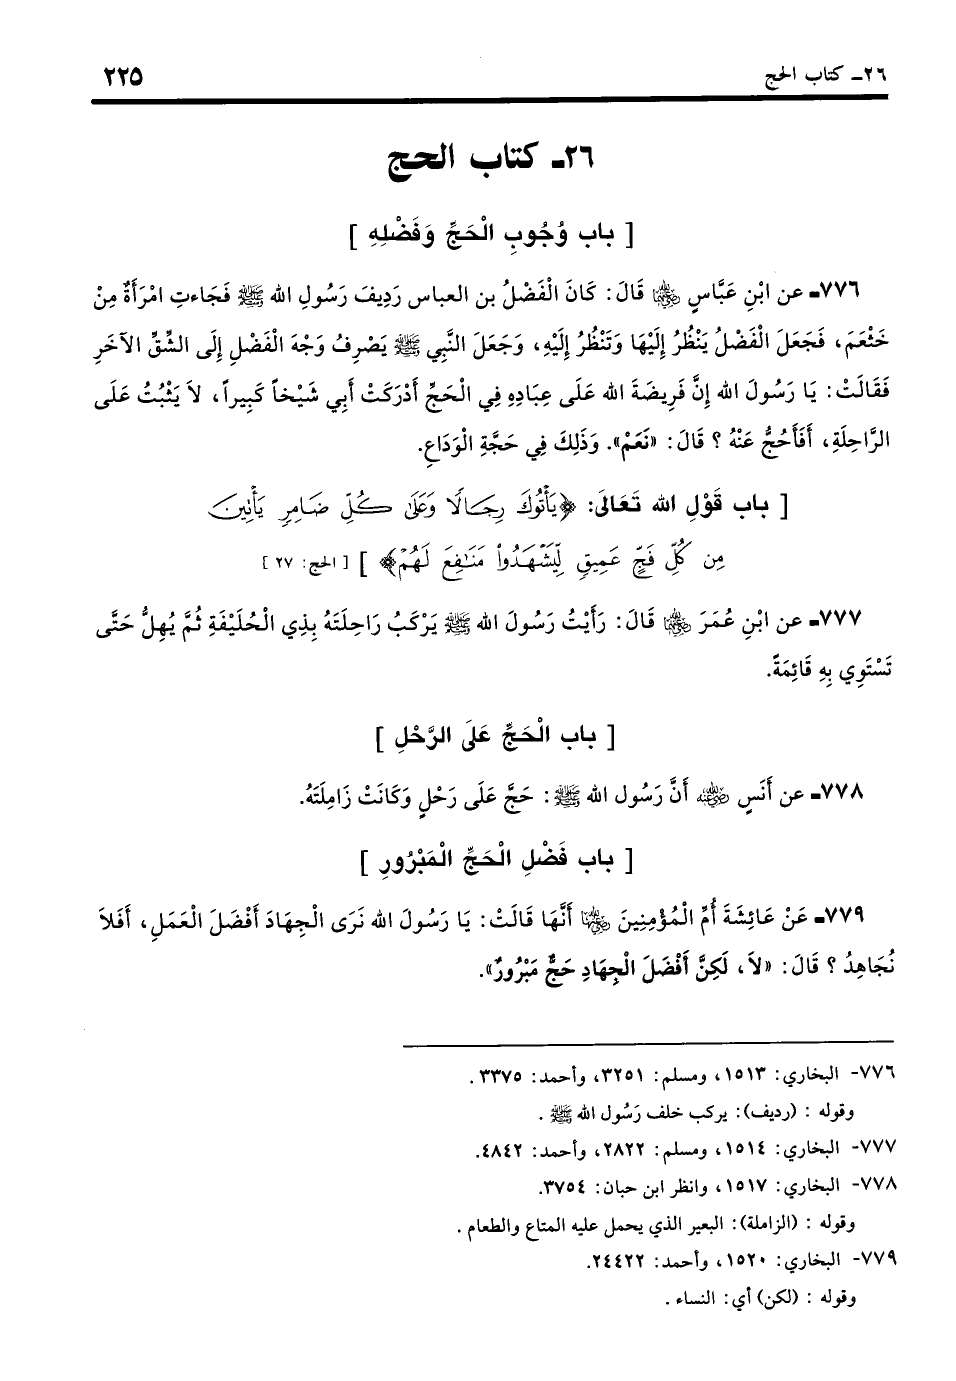 ٢٦ـ كتاب الحج
٢٢٥
٢٦ـ كتاب الحج
[ باب وُجُوبِ الْحَجِّ وَفَضْلِهِ ]
٧٧٦ـ عن ابْنِ عَبَّاسٍ ﵄ قَالَ: كَانَ الْفَضْلُ بن العباس رَدِيفَ رَسُولِ الله ﷺ فَجَاءتِ امْرَأَةٌ مِنْ
خَثْعَمَ، فَجَعَلَ الْفَضْلُ يَنْظُرُ إِلَيْهَا وَتَنْظُرُ إِلَيْهِ، وَجَعَلَ النَّبِي ﷺ يَصْرِفُ وَجْهَ الْفَضْلِ إِلَى الشِّقِّ الآخَرِ
فَقَالَتْ: يَا رَسُولَ الله إِنَّ فَرِيضَةَ الله عَلَى عِبَادِهِ فِي الْحَجِّ أَدْرَكَتْ أَبِي شَيْخاً كَبِيراً، لاَ يَثْبُتُ عَلَى
الرَّاحِلَةِ، أَفَأَحُجُّ عَنْهُ ؟ قَالَ: «نَعَمْ». وَذَلِكَ فِي حَجَّةِ الْوَدَاعِ.
[ باب قَوْلِ الله تَعَالَى: ﴿يَأْتُوكَ رِجَالًا وَعَلَىٰ كُلِّ ضَامِرٍ يَأْتِينَ
مِن كُلِّ فَجٍّ عَمِيقٍ لِّيَشْهَدُواْ مَنَـٰفِعَ لَهُمْ﴾ ] [الحج: ٢٧]
٧٧٧ـ عن ابْنِ عُمَرَ ﵄ قَالَ: رَأَيْتُ رَسُولَ الله ﷺ يَرْكَبُ رَاحِلَتَهُ بِذِي الْحُلَيْفَةِ ثُمَّ يُهِلُّ حَتَّى
تَسْتَوِي بِهِ قَائِمَةً.
[ باب الْحَجِّ عَلَى الرَّحْلِ ]
٧٧٨ـ عن أَنَسٍ ﵁ أَنَّ رَسُول الله ﷺ: حَجَّ عَلَى رَحْلٍ وَكَانَتْ زَامِلَتَهُ.
[ باب فَضْلِ الْحَجِّ الْمَبْرُورِ ]
٧٧٩ـ عَنْ عَائِشَةَ أُمِّ الْمُؤْمِنِينَ ﵂ أَنَّهَا قَالَتْ: يَا رَسُولَ الله نَرَى الْجِهَادَ أَفْضَلَ الْعَمَلِ، أَفَلاَ
نُجَاهِدُ ؟ قَالَ: «لاَ، لَكِنَّ أَفْضَلَ الْجِهَادِ حَجٌّ مَبْرُورٌ».
٧٧٦- البخاري: ١٥١٣، ومسلم: ٣٢٥١، وأحمد: ٣٣٧٥.
وقوله : (رديف): يركب خلف رَسُول الله ﷺ .
٧٧٧- البخاري: ١٥١٤، ومسلم: ٢٨٢٢، وأحمد: ٤٨٤٢.
٧٧٨- البخاري: ١٥١٧، وانظر ابن حبان: ٣٧٥٤.
وقوله : (الزاملة): البعير الذي يحمل عليه المتاع والطعام .
٧٧٩- البخاري: ١٥٢٠، وأحمد: ٢٤٤٢٢.
وقوله : (لكن) أي: النساء .